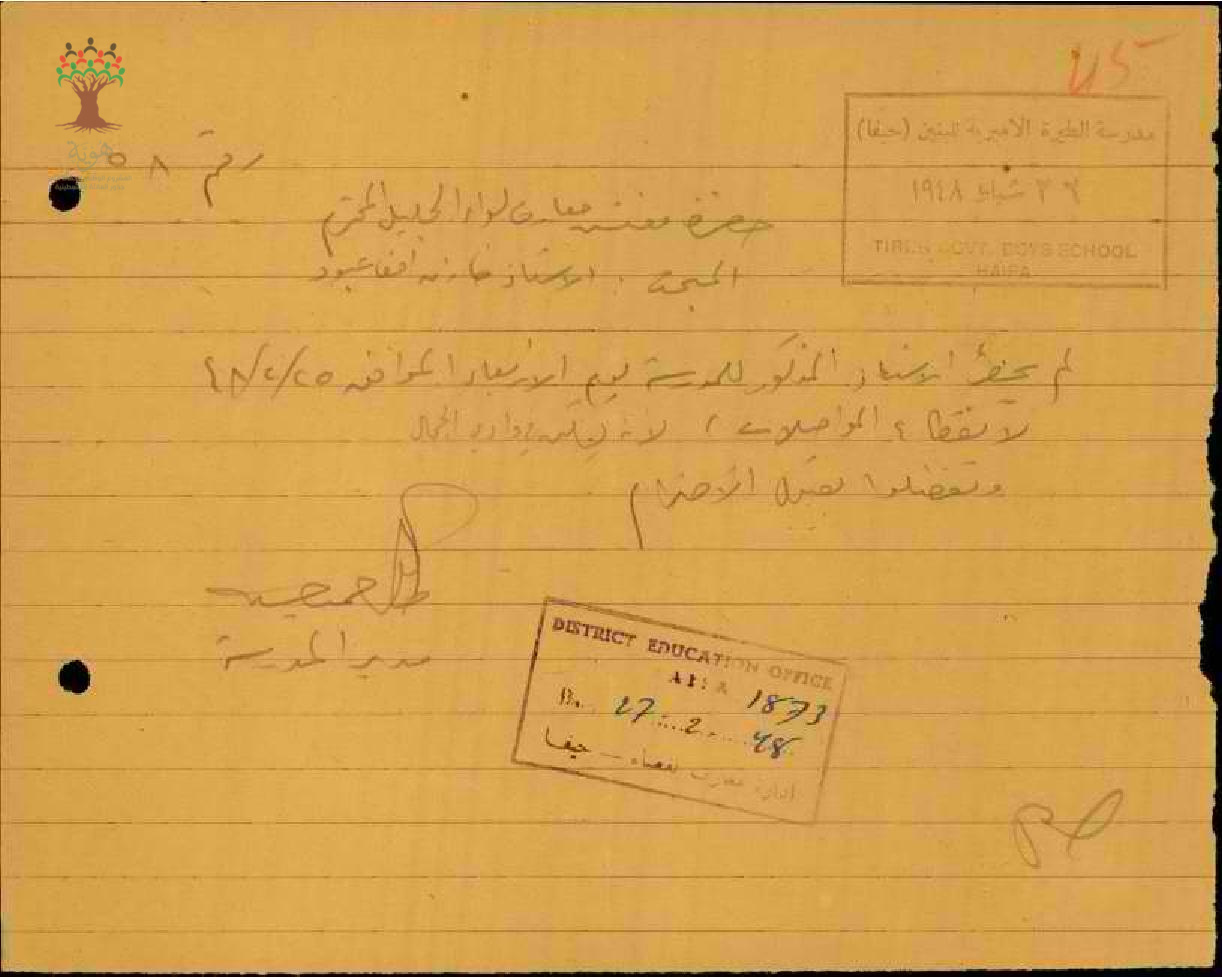 45
مدرسة الطيرة الاميرية للبنين (حيفا)
٢٦ شباط ١٩٤٨
TIREH GOVT. BOYS SCHOOL
HAIFA
هوية
رقم ٥٨
حضرة مفتش معارف لواء الجليل المحترم
المبحث : الاستاذ عبود
لم يحضر الاستاذ المذكور للمدرسة يوم الاربعاء الموافق ٤٨/٢/٢٥
لانقطاع المواصلات ، لانه يسكن بوادي الجمال
وتفضلوا بقبول الاحترام
مدير المدرسة
DISTRICT EDUCATION OFFICE
1873
27 . 2 . 48
ادارة معارف لقضاء — حيفا